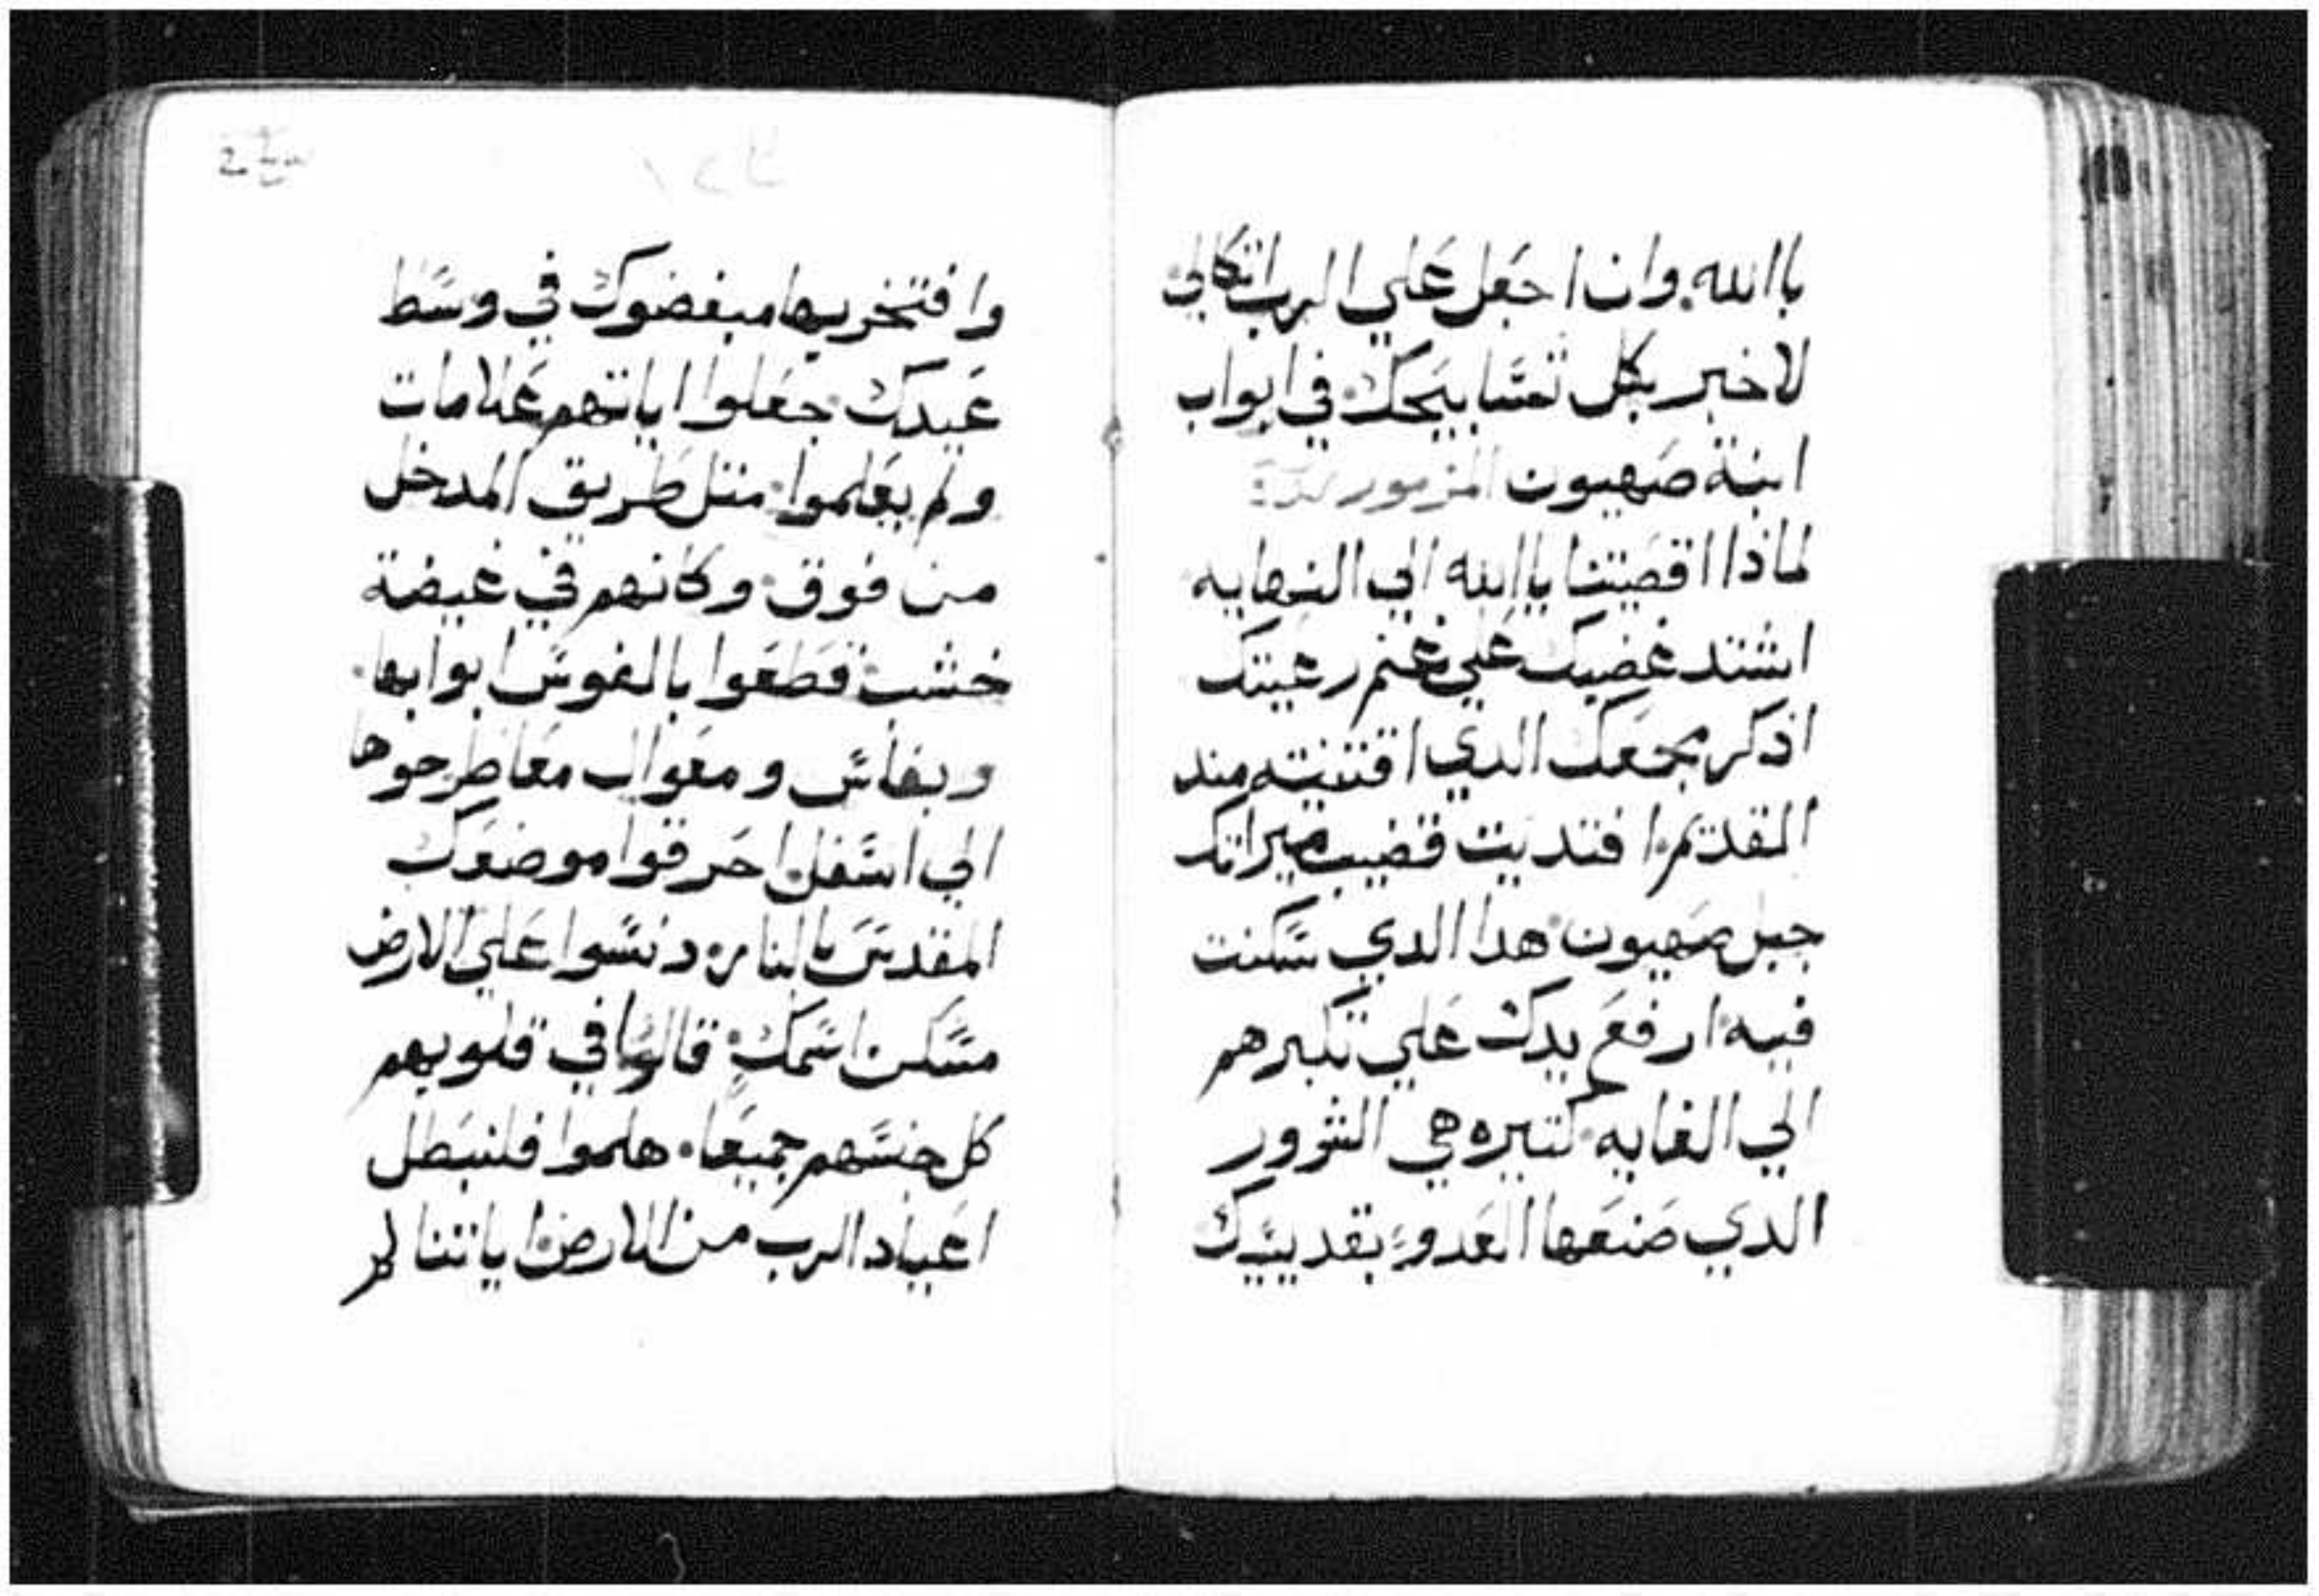 باالله. وان اجعل علي الرب اتكالي
لاخبر بكل تسابيحك في ابواب
ابنة صهيون المزمور
لماذا اقصيتنا ياالله الي النهايه
اشتد غضبك علي غنم رعيتك
اذكر مجمعك الدي اقتنيته مند
القديم افتديت قضيب ميراتك
جبل صهيون هدا الدي سكنت
فيه ارفع يدك علي تكبرهم
الي الغايه كتيره هي الشرور
الدي صنعها العدو بقديسيك
وافتخر بها مبغضوك في وسط
عيدك جعلوا اياتهم علامات
ولم يعلموا متل طريق المدخل
من فوق وكانهم في غيضة
خشب قطعوا بالفوس ابوابها
وبفاس ومعوال معا طرحوها
الي اسفل احرقوا موضعك
المقدس بالنار ودنسوا علي الارض
مسكن اسمك قالوا في قلوبهم
كل جنسهم جميعا. هلموا فلنبطل
اعياد الرب من الارض اياتنا لم